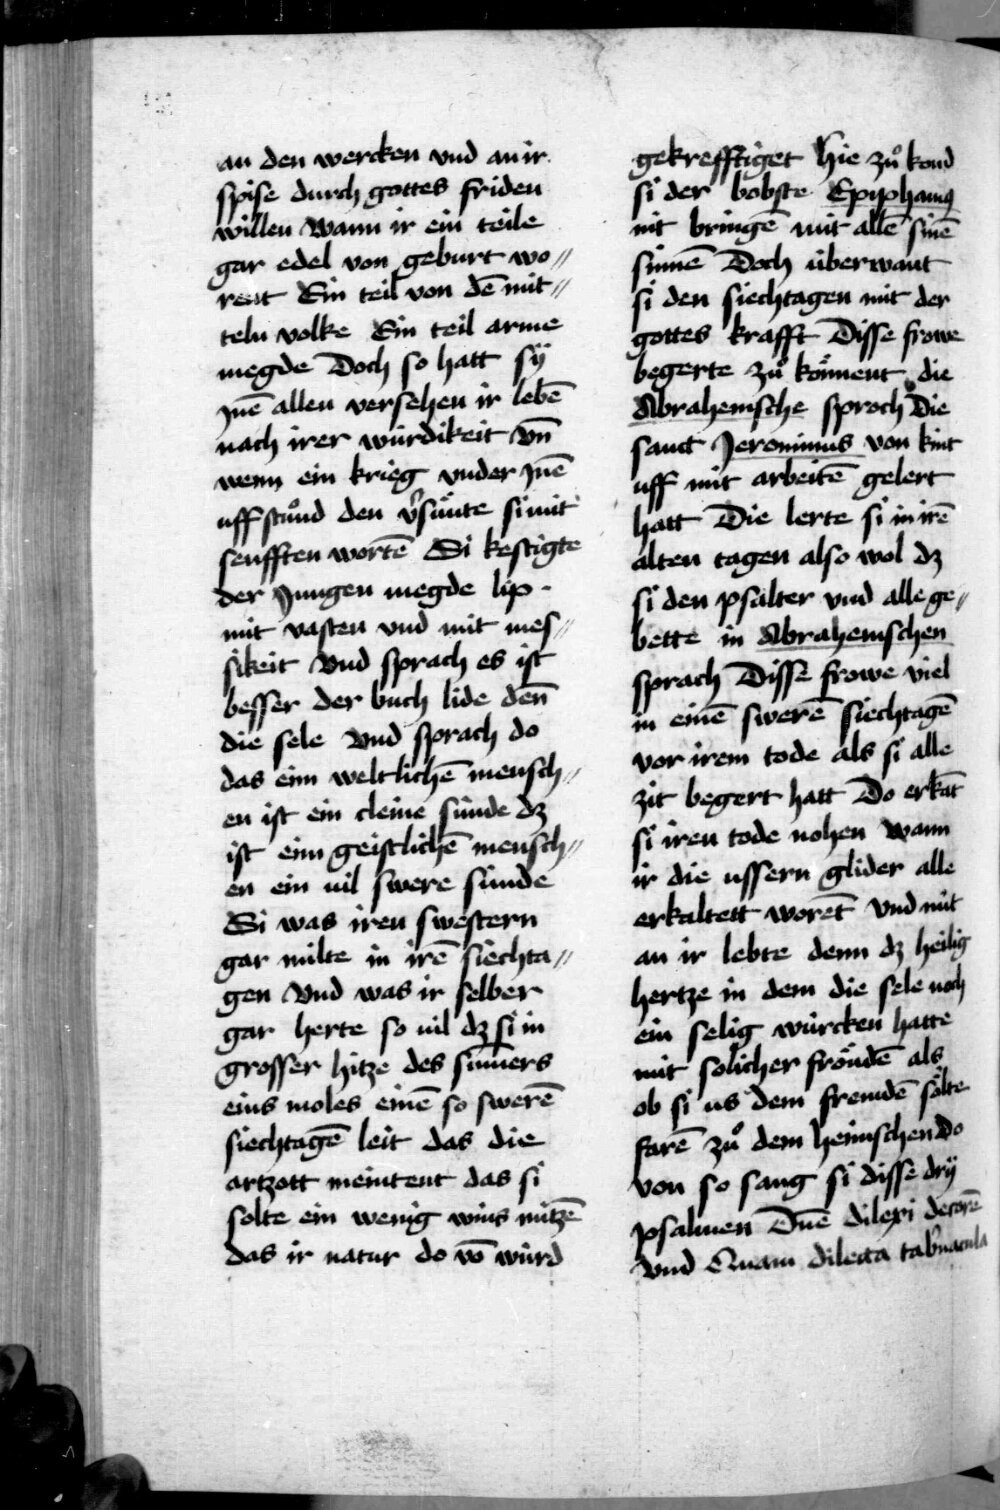 an den wercken vnd an ir
spise durch gottes friden
willen Wann ir ein teile
gar edel von geburt wo〃
rent Ein teil von dē mit〃
teln volke Ein teil arme
megde Doch so hatt sÿ
jnē allen versehen ir lebē
nach irer würdikeit Vn̄
wenn ein krieg vnder jnē
uff stůnd den v̉sůnte si mit
senfften wortē Si kestigte
der Jungen megde lip ·
mit vasten vnd mit mes〃
sikeit Vnd sprach es ist
besser der buch lide den̄
die sele Vnd sprach do
das einn weltlichē mensch〃
en ist ein cleine sünde dz
ist einn geistlichē mensch〃
en ein vil swere sünde
Si was iren swestern
gar milte in irē siechta〃
gen Vnd was ir selber
gar herte so vil dz si in
grosser hitze des sum̄ers
eins moles einē so swerē
siechtagē leit das die
artzott meintent das si
solte ein wenig wins nützē
das ir natur do vō würd
gekrefftiget Hie zů kond
si der bobste Epyphanius
nit bringē mit allē sinē
sinnē Doch überwant
si den siechtagen mit der
gottes krafft Disse frowe
begerte zů kön̄ent die
Abrahemsche sproch Die
sanct Jeronimus von kint
uff mit arbeitē gelert
hatt Die lerte si in irē
alten tagen also wol dz
si den psalter vnd alle ge〃
bette in Abrahemschen
sprach Disse frowe viel
in einē swerē siechtagē
vor irem tode als si alle
zit begert hatt Do erkāt
si iren tode nohen Wann
ir die ussern glider alle
erkaltett worēt Vnd nüt
an ir lebte denn dz heilig
hertze in dem die sele noch
ein selig würcken hatte
mit solicher fröudē als
ob si us dem fremdē sölte
farē zů dem heimschen Do
von so sang si disse drÿ
psalmen Dn̄e dilexi decorē
Vnd Quam dilecta tab̉nacula